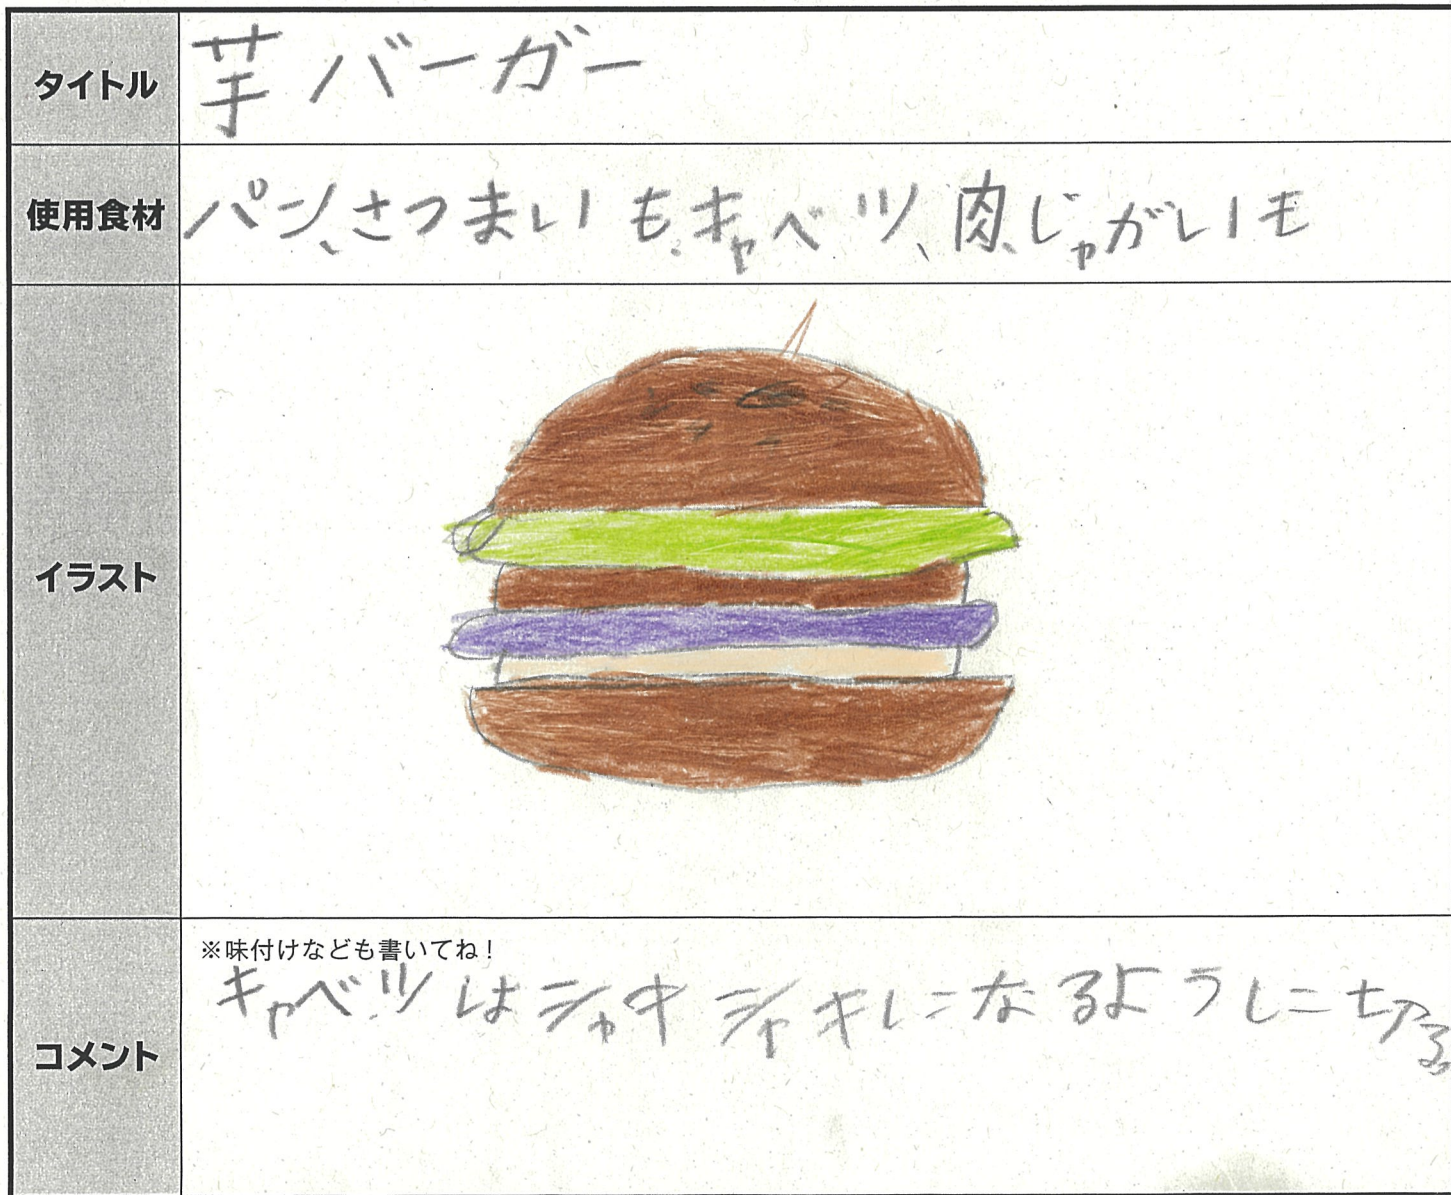 タイトル
芋バーガー
使用食材
パン、さつまいも、キャベツ、肉、じゃがいも
イラスト
コメント
※味付けなども書いてね!
キャベツはシャキシャキになるように切る。